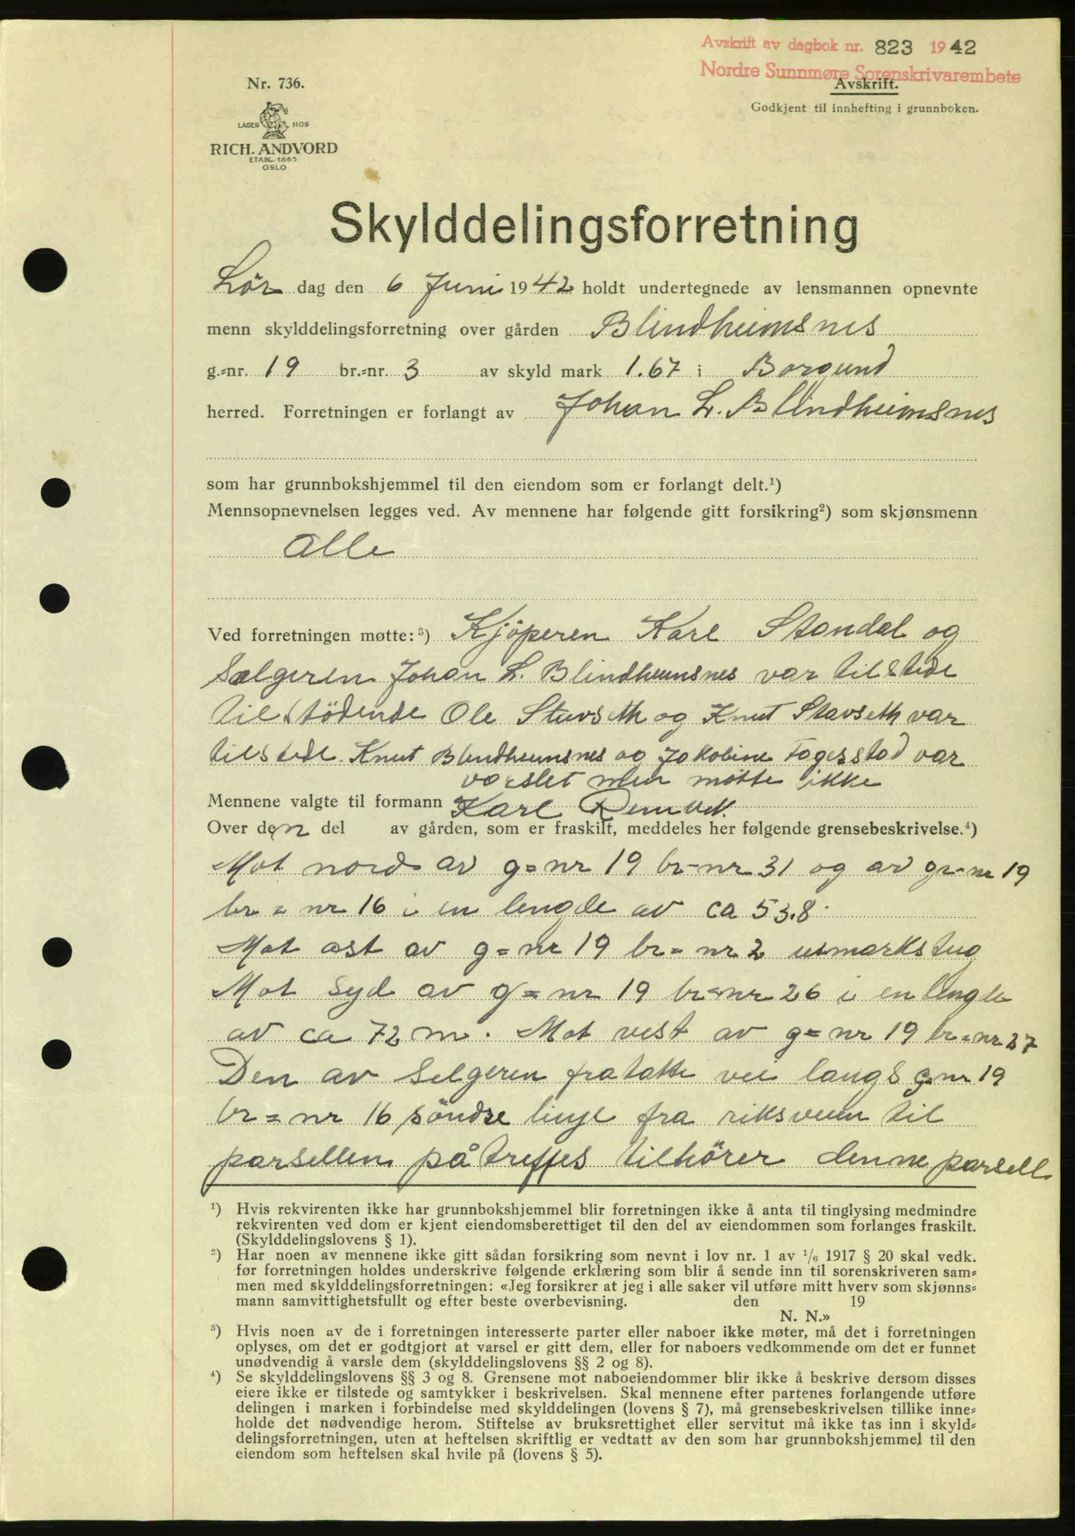 Avskrift av dagbok nr. 823 1942
Nordre Sunnmøre Sorenskrivarembete
Nr. 736.
Avskrift.
Godkjent til innhefting i grunnboken.
LAGER HOS
RICH. ANDVORD
ETABL. 1865
OSLO
Skylddelingsforretning
Lör dag den 6 Juni 1942 holdt undertegnede av lensmannen opnevnte
menn skylddelingsforretning over gården Blindheimsnes
g.=nr. 19 br.=nr. 3 av skyld mark 1.67 i Borgund
herred. Forretningen er forlangt av Johan L. Blindheimsnes
som har grunnbokshjemmel til den eiendom som er forlangt delt.¹)
Mennsopnevnelsen legges ved. Av mennene har følgende gitt forsikring²) som skjønsmenn
Alle
Ved forretningen møtte:³) Kjöperen Karl Standal og
Sælgeren Johan L. Blindheimsnes var tilstede
tilstödende Ole Stavseth og Knut Stavseth var
tilstede. Knut Blindheimsnes og Jakobine Fagerstad var
varslet men møtte ikke
Mennene valgte til formann Karl
Over den del av gården, som er fraskilt, meddeles her følgende grensebeskrivelse.⁴)
Mot nord av g=nr 19 br=nr 31 og av gr=nr 19
br=nr 16 i en lengde av ca 53.8.
Mot øst av g=nr 19 br=nr 2
Mot syd av g=nr 19 br=nr 26 i en lengde
av ca 72 m. Mot vest av g=nr 19 br=nr 27
Den av Selgeren fratatte vei langs g=nr 19
br=nr 16 söndre linje fra riksveien til
parsellen på treffes tilhörer denne parsell
¹) Hvis rekvirenten ikke har grunnbokshjemmel blir forretningen ikke å anta til tinglysing medmindre
rekvirenten ved dom er kjent eiendomsberettiget til den del av eiendommen som forlanges fraskilt.
(Skylddelingslovens § 1).
²) Har noen av mennene ikke gitt sådan forsikring som nevnt i lov nr. 1 av ¹/₆ 1917 § 20 skal vedk.
før forretningen holdes underskrive følgende erklæring som blir å sende inn til sorenskriveren sam=
men med skylddelingsforretningen: «Jeg forsikrer at jeg i alle saker vil utføre mitt hverv som skjønns=
mann samvittighetsfullt og efter beste overbevisning. den 19
N. N.»
³) Hvis noen av de i forretningen interesserte parter eller naboer ikke møter, må det i forretningen
oplyses, om det er godtgjort at varsel er gitt dem, eller for naboers vedkommende om det er funnet
unødvendig å varsle dem (skylddelingslovens §§ 2 og 8).
⁴) Se skylddelingslovens §§ 3 og 8. Grensene mot naboeiendommer blir ikke å beskrive dersom disses
eiere ikke er tilstede og samtykker i beskrivelsen. Skal mennene efter partenes forlangende utføre
delingen i marken i forbindelse med skylddelingen (lovens § 7), må grensebeskrivelsen tillike inne=
holde det nødvendige herom. Stiftelse av bruksrettighet eller servitut må ikke tas inn i skyld=
delingsforretningen, uten at heftelsen skriftlig er vedtatt av den som har grunnbokshjemmel til den
eiendom som heftelsen skal hvile på (lovens § 5).